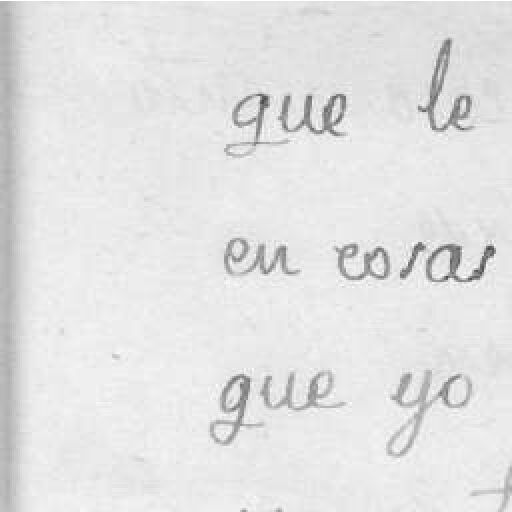 que le
en cosas
que yo